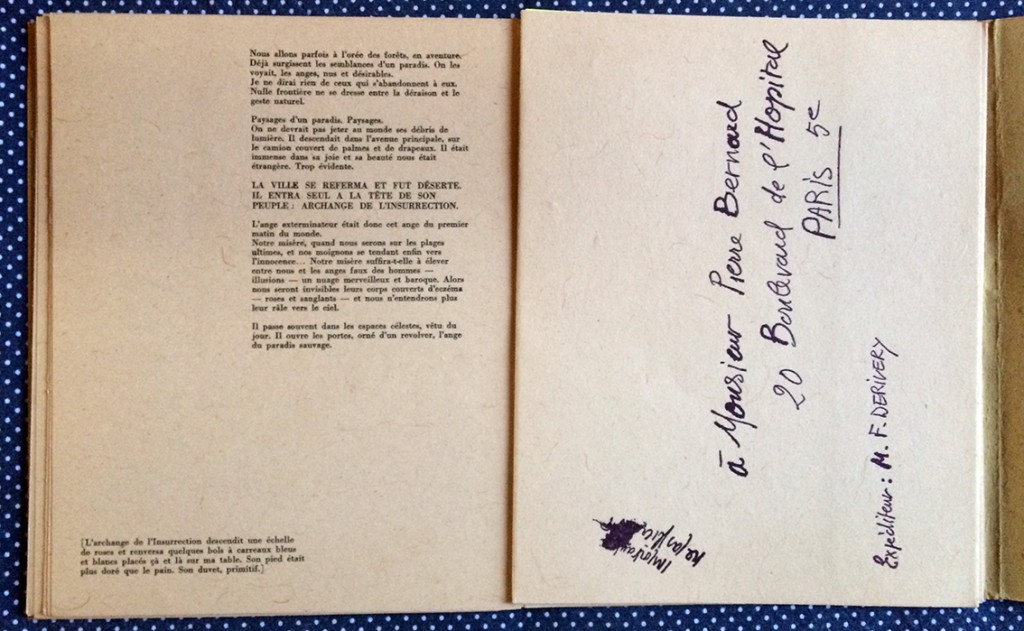 Nous allons parfois à l'orée des forêts, en aventure.
Déjà surgissent les semblances d'un paradis. On les
voyait, les anges, nus et désirables.
Je ne dirai rien de ceux qui s'abandonnent à eux.
Nulle frontière ne se dresse entre la déraison et le
geste naturel.
Paysages d'un paradis. Paysages.
On ne devrait pas jeter au monde ses débris de
lumière. Il descendait dans l'avenue principale, sur
le camion couvert de palmes et de drapeaux. Il était
immense dans sa joie et sa beauté nous était
étrangère. Trop évidente.
LA VILLE SE REFERMA ET FUT DÉSERTE.
IL ENTRA SEUL A LA TÊTE DE SON
PEUPLE : ARCHANGE DE L'INSURRECTION.
L'ange exterminateur était donc cet ange du premier
matin du monde.
Notre misère, quand nous serons sur les plages
ultimes, et nos moignons se tendant enfin vers
l'innocence... Notre misère suffira-t-elle à élever
entre nous et les anges faux des hommes —
illusions — un nuage merveilleux et baroque. Alors
nous seront invisibles leurs corps couverts d'eczéma
— roses et sanglants — et nous n'entendrons plus
leur râle vers le ciel.
Il passe souvent dans les espaces célestes, vêtu du
jour. Il ouvre les portes, orné d'un revolver, l'ange
du paradis sauvage.
[L'archange de l'Insurrection descendit une échelle
de roses et renversa quelques bols à carreaux bleus
et blancs placés çà et là sur ma table. Son pied était
plus doré que le pain. Son duvet, primitif.]
à Monsieur Pierre Bernard
20 Boulevard de l'Hopital
PARIS 5e
Expéditeur : M. F. DERIVERY